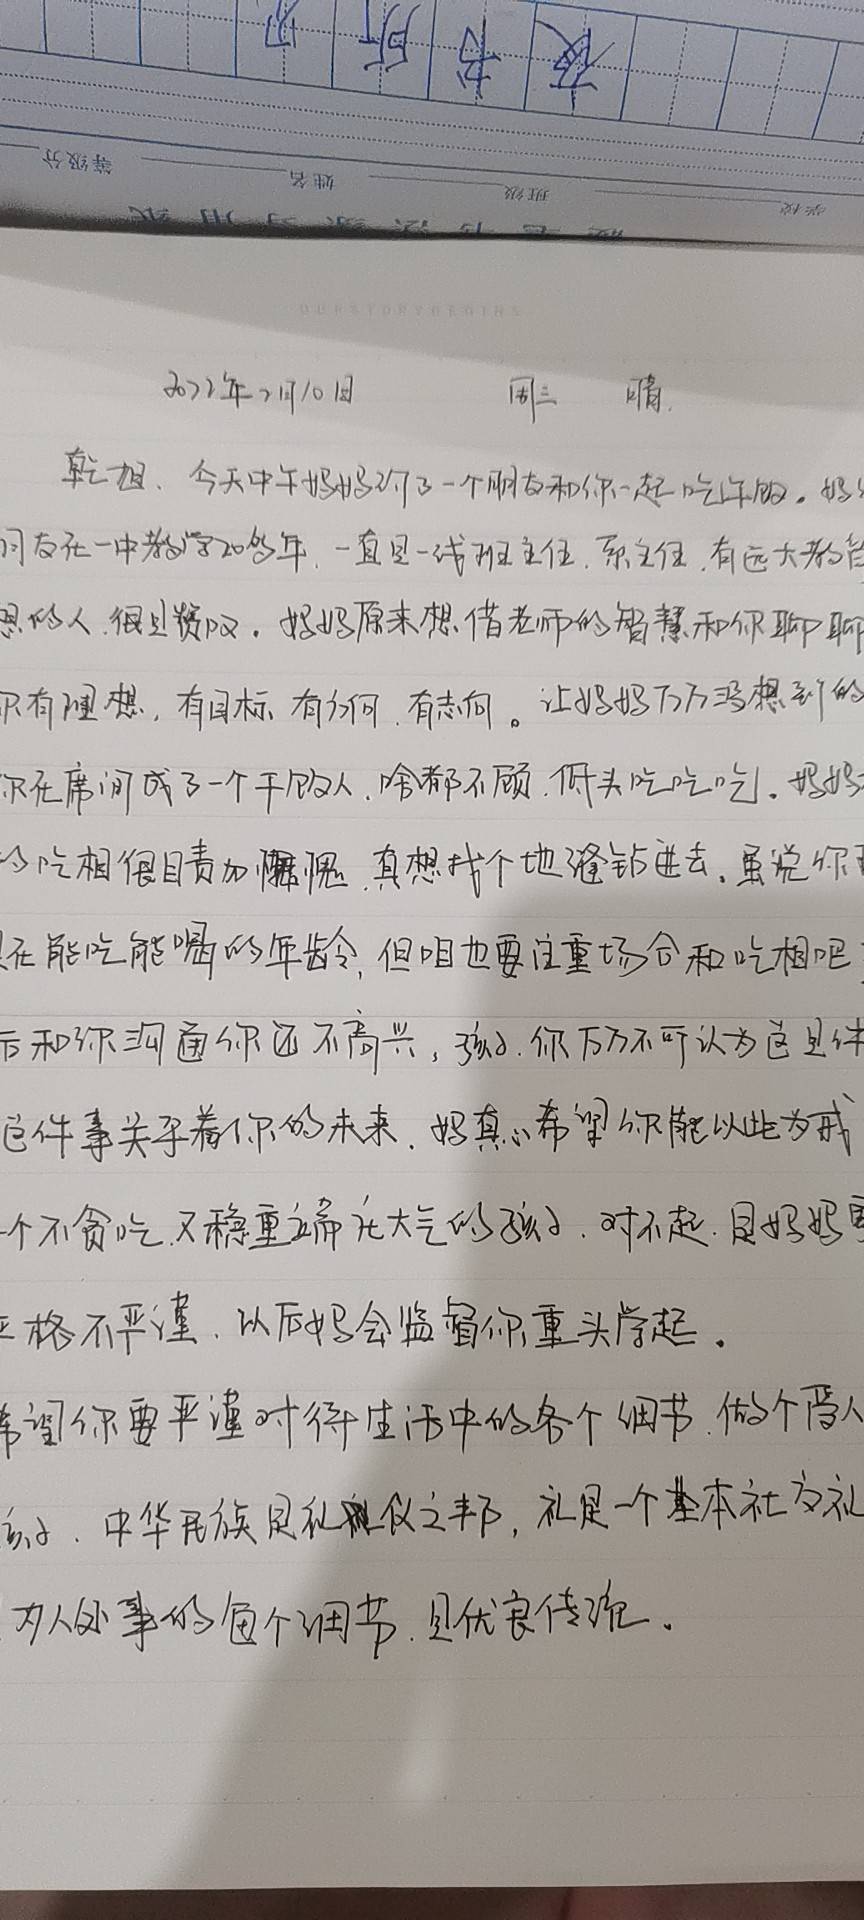 等级分 姓名 班级 学校
硬笔书法练习用纸
2022年2月10日 周三 晴.
乾旭、今天中午妈妈约了一个朋友和你一起吃午饭。妈
朋友在一中教学20多年、一直是一线班主任、系主任、有远大教
想的人、很是赞叹。妈妈原来想借老师的智慧和你聊聊
有理想，有目标、有方向、有志向。让妈妈万万没想到的
你在席间成了一个干饭人、啥都不顾、低头吃吃吃。妈妈
的吃相很自责加惭愧、真想找个地缝钻进去。虽说你
在能吃能喝的年龄，但咱也要注重场合和吃相吧
后和你沟通你还不高兴，孩子、你万万不可认为这是件
这件事关乎着你的未来、妈真心希望你能以此为戒
一个不贪吃、又稳重端庄大气的孩子、对不起、是妈妈
严格不严谨、以后妈会监督你重头学起。
希望你要严谨对待生活中的各个细节、做个受人
孩子、中华民族是礼仪之邦，礼是一个基本社交礼
为人处事的每个细节、是优良传统。